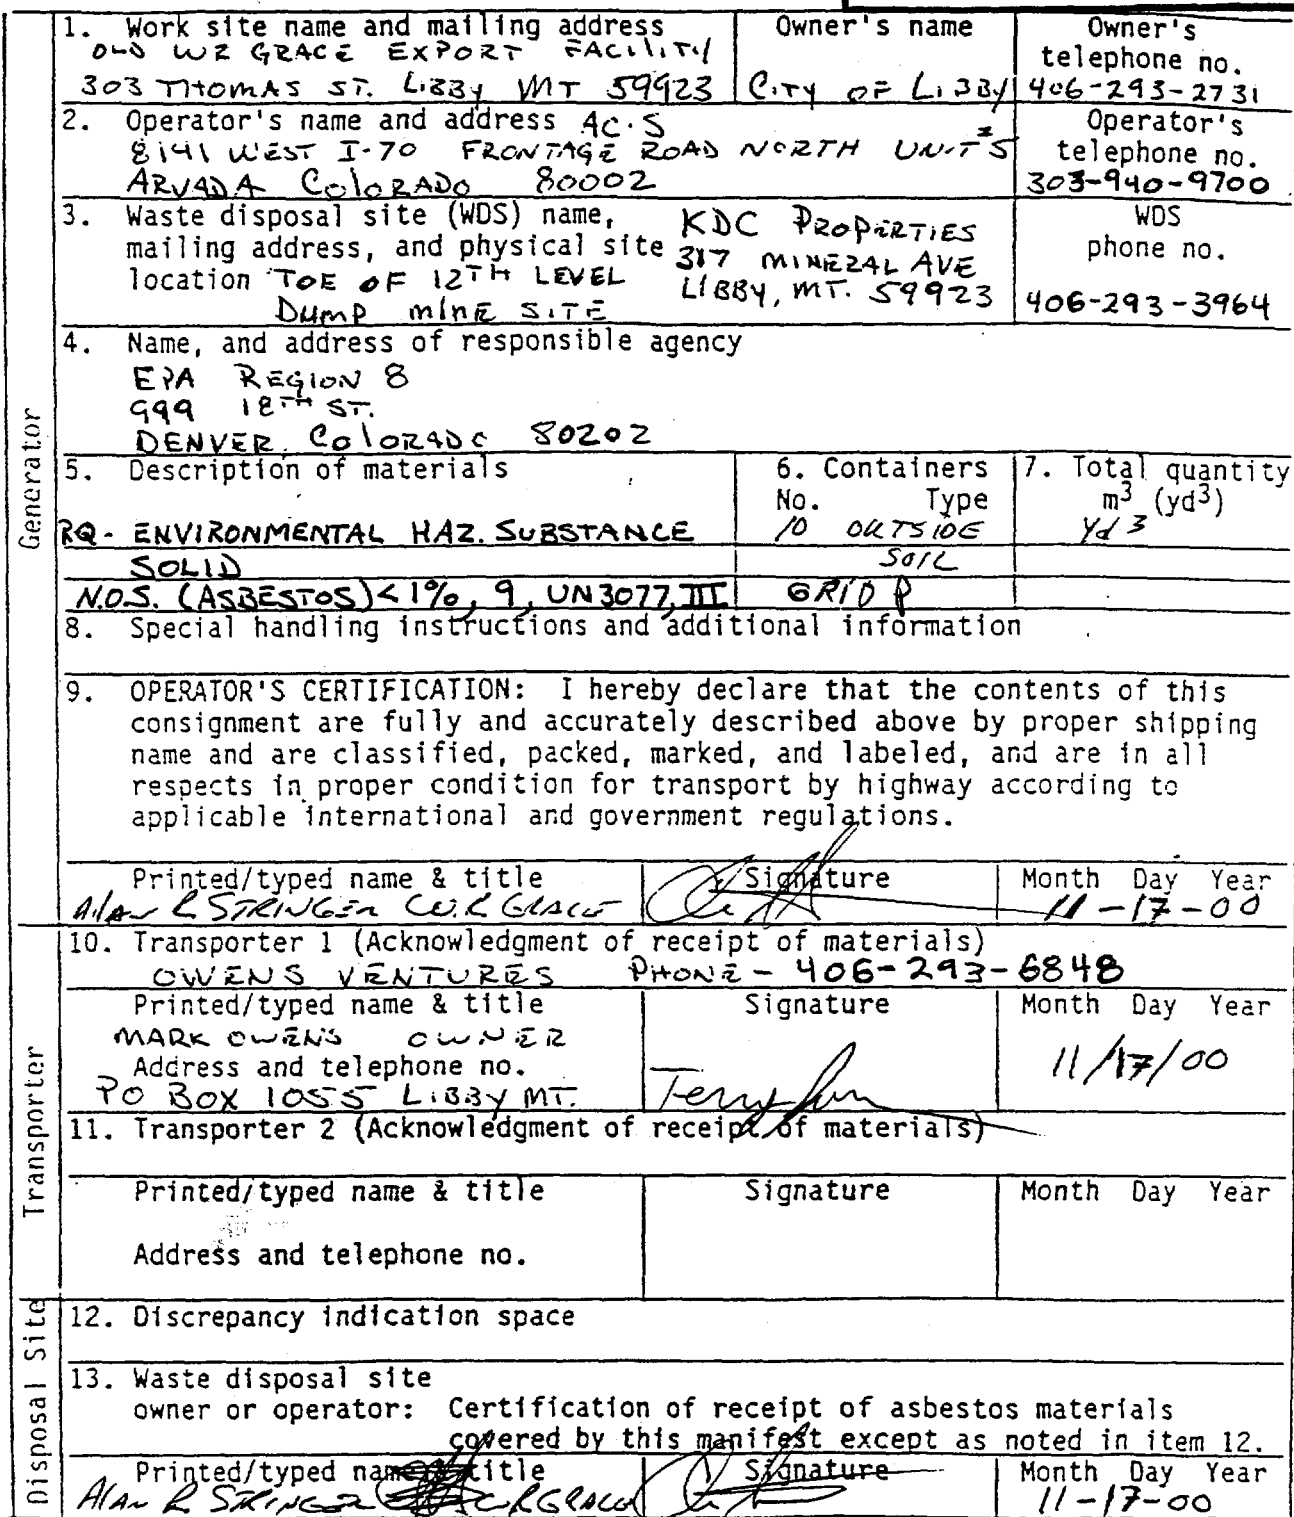 1. Work site name and mailing address
OLD WR GRACE EXPORT FACILITY
303 THOMAS ST. LIBBY MT 59923
Owner's name
CITY OF LIBBY
Owner's
telephone no.
406-293-2731
2. Operator's name and address AC.S
8141 WEST I-70 FRONTAGE ROAD NORTH UNIT 5
ARVADA COLORADO 80002
Operator's
telephone no.
303-940-9700
3. Waste disposal site (WDS) name,
mailing address, and physical site
location TOE OF 12TH LEVEL
DUMP MINE SITE
KDC PROPERTIES
317 MINERAL AVE
LIBBY, MT. 59923
WDS
phone no.
406-293-3964
Generator
4. Name, and address of responsible agency
EPA REGION 8
999 18TH ST.
DENVER, COLORADO 80202
5. Description of materials
RQ- ENVIRONMENTAL HAZ. SUBSTANCE
SOLID
N.O.S. (ASBESTOS) <1%, 9, UN3077, III
6. Containers
No. Type
10 OUTSIDE
SOIL
GRID P
7. Total quantity
m3 (yd3)
Yd 3
8. Special handling instructions and additional information
9. OPERATOR'S CERTIFICATION: I hereby declare that the contents of this
consignment are fully and accurately described above by proper shipping
name and are classified, packed, marked, and labeled, and are in all
respects in proper condition for transport by highway according to
applicable international and government regulations.
Printed/typed name & title
Alan R STRINGER W.R GRACE
Signature
Month Day Year
11-17-00
Transporter
10. Transporter 1 (Acknowledgment of receipt of materials)
OWENS VENTURES PHONE - 406-293-6848
Printed/typed name & title
MARK OWENS OWNER
Address and telephone no.
PO BOX 1055 LIBBY MT.
Signature
Terry
Month Day Year
11/17/00
11. Transporter 2 (Acknowledgment of receipt of materials)
Printed/typed name & title
Signature
Month Day Year
Address and telephone no.
Disposal Site
12. Discrepancy indication space
13. Waste disposal site
owner or operator: Certification of receipt of asbestos materials
covered by this manifest except as noted in item 12.
Printed/typed name & title
Alan R STRINGER W R GRACE
Signature
Month Day Year
11-17-00